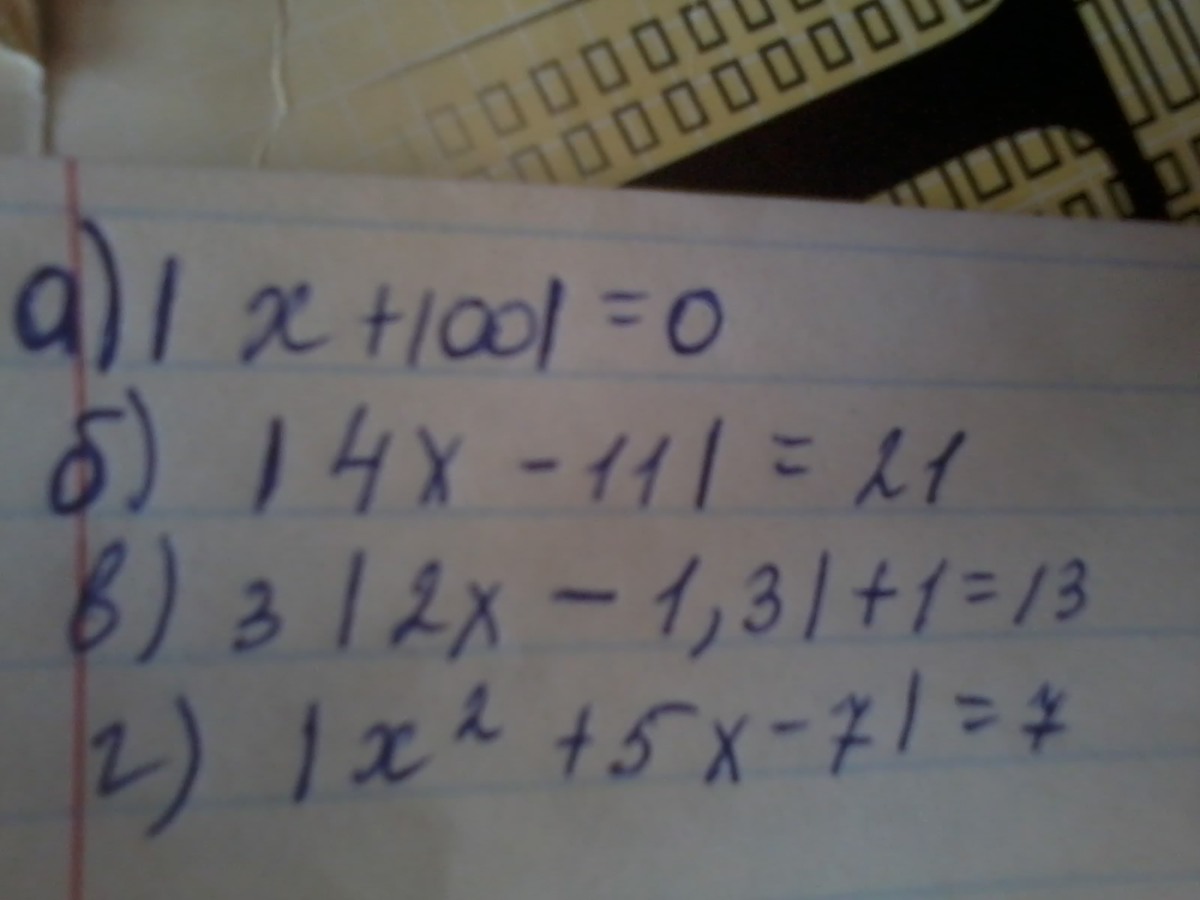 а) | x + 100 | = 0
б) | 4x - 11 | = 21
в) 3 | 2x - 1,3 | + 1 = 13
г) | x² + 5x - 7 | = 7